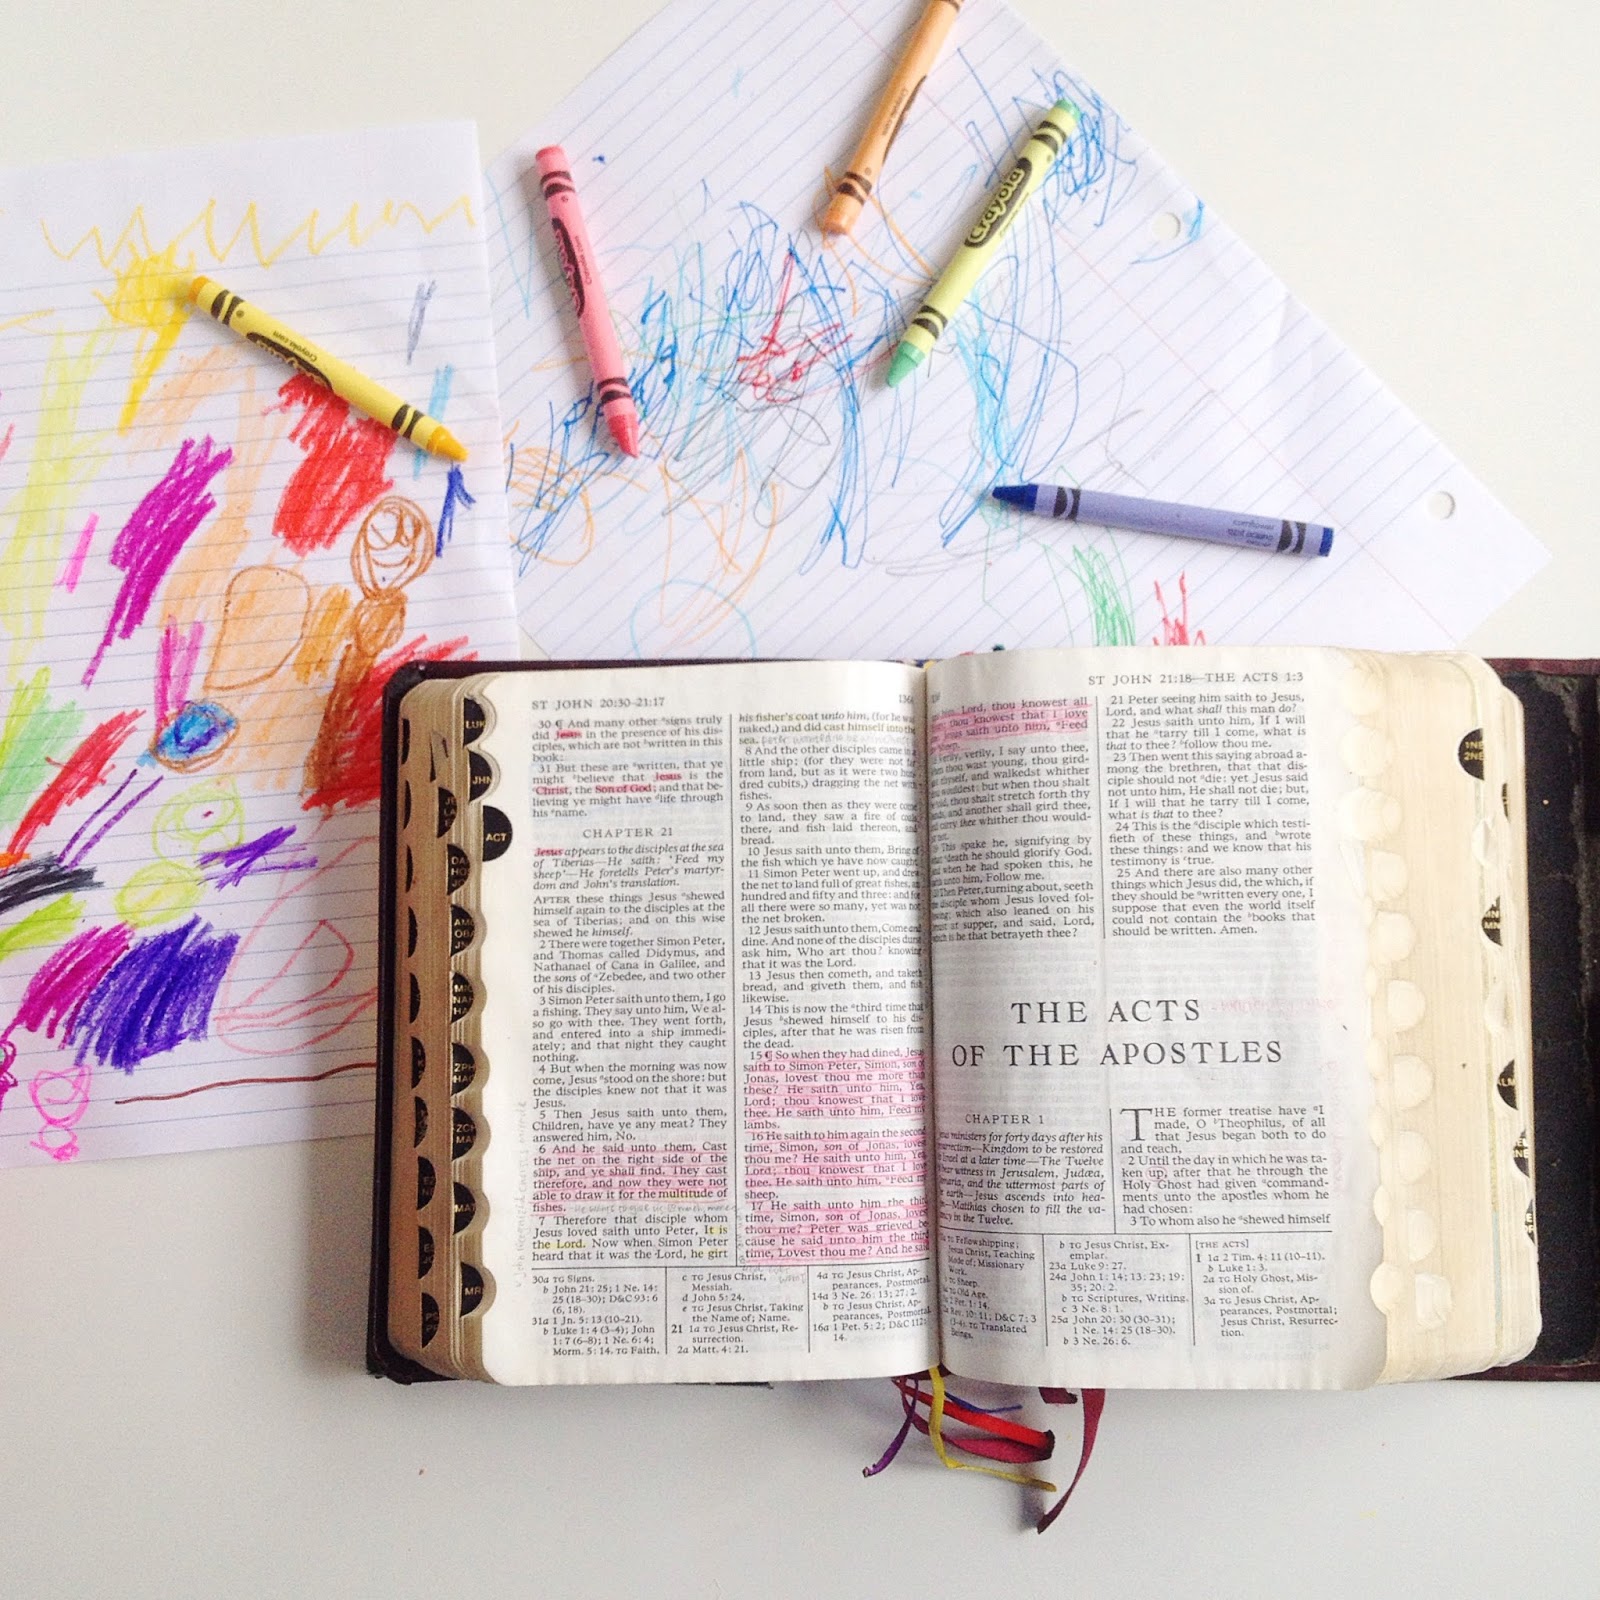 Crayola
Crayola
Crayola
Crayola
ST JOHN 20:30–21:17
30 ¶ And many other signs truly
did Jesus in the presence of his dis-
ciples, which are not written in this
book:
31 But these are written, that ye
might believe that Jesus is the
Christ, the Son of God; and that be-
lieving ye might have life through
his name.
CHAPTER 21
Jesus appears to the disciples at the sea
of Tiberias—He saith: 'Feed my
sheep'—He foretells Peter's martyr-
dom and John's translation.
AFTER these things Jesus shewed
himself again to the disciples at the
sea of Tiberias; and on this wise
shewed he himself.
2 There were together Simon Peter,
and Thomas called Didymus, and
Nathanael of Cana in Galilee, and
the sons of Zebedee, and two other
of his disciples.
3 Simon Peter saith unto them, I go
a fishing. They say unto him, We al-
so go with thee. They went forth,
and entered into a ship immedi-
ately; and that night they caught
nothing.
4 But when the morning was now
come, Jesus stood on the shore: but
the disciples knew not that it was
Jesus.
5 Then Jesus saith unto them,
Children, have ye any meat? They
answered him, No.
6 And he said unto them, Cast
the net on the right side of the
ship, and ye shall find. They cast
therefore, and now they were not
able to draw it for the multitude of
fishes.
7 Therefore that disciple whom
Jesus loved saith unto Peter, It is
the Lord. Now when Simon Peter
heard that it was the Lord, he girt
his fisher's coat unto him, (for he was
naked,) and did cast himself into the
sea.
8 And the other disciples came in a
little ship; (for they were not far
from land, but as it were two hun-
dred cubits,) dragging the net with
fishes.
9 As soon then as they were come
to land, they saw a fire of coals
there, and fish laid thereon, and
bread.
10 Jesus saith unto them, Bring of
the fish which ye have now caught.
11 Simon Peter went up, and drew
the net to land full of great fishes, an
hundred and fifty and three: and for
all there were so many, yet was not
the net broken.
12 Jesus saith unto them, Come and
dine. And none of the disciples durst
ask him, Who art thou? knowing
that it was the Lord.
13 Jesus then cometh, and taketh
bread, and giveth them, and fish
likewise.
14 This is now the third time that
Jesus shewed himself to his dis-
ciples, after that he was risen from
the dead.
15 ¶ So when they had dined, Jesus
saith to Simon Peter, Simon, son of
Jonas, lovest thou me more than
these? He saith unto him, Yea,
Lord; thou knowest that I love
thee. He saith unto him, Feed my
lambs.
16 He saith to him again the second
time, Simon, son of Jonas, lovest
thou me? He saith unto him, Yea,
Lord; thou knowest that I love
thee. He saith unto him, Feed my
sheep.
17 He saith unto him the third
time, Simon, son of Jonas, lovest
thou me? Peter was grieved be-
cause he said unto him the third
time, Lovest thou me? And he said
30a TG Signs.
b John 21: 25; 1 Ne. 14:
25 (18–30); D&C 93: 6
(6, 18).
31a 1 Jn. 5: 13 (10–21).
b Luke 1: 4 (3–4); John
1: 7 (6–8); 1 Ne. 6: 4;
Morm. 5: 14. TG Faith.
c TG Jesus Christ,
Messiah.
d John 5: 24.
e TG Jesus Christ, Taking
the Name of; Name.
21 1a TG Jesus Christ, Re-
surrection.
2a Matt. 4: 21.
4a TG Jesus Christ, Ap-
pearances, Postmortal.
14a 3 Ne. 26: 13; 27: 2.
b TG Jesus Christ, Ap-
pearances, Postmortal.
16a 1 Pet. 5: 2; D&C 112:
14.
ST JOHN 21:18—THE ACTS 1:3
him, Lord, thou knowest all
thou knowest that I love
Jesus saith unto him, Feed
sheep.
verily, I say unto thee,
thou wast young, thou gird-
and walkedst whither
wouldest: but when thou shalt
thou shalt stretch forth thy
and another shall gird thee,
and carry thee whither thou would-
not.
This spake he, signifying by
what death he should glorify God.
and when he had spoken this, he
saith unto him, Follow me.
Then Peter, turning about, seeth
the disciple whom Jesus loved fol-
lowing; which also leaned on his
breast at supper, and said, Lord,
which is he that betrayeth thee?
21 Peter seeing him saith to Jesus,
Lord, and what shall this man do?
22 Jesus saith unto him, If I will
that he tarry till I come, what is
that to thee? follow thou me.
23 Then went this saying abroad a-
mong the brethren, that that dis-
ciple should not die: yet Jesus said
not unto him, He shall not die; but,
If I will that he tarry till I come,
what is that to thee?
24 This is the disciple which testi-
fieth of these things, and wrote
these things: and we know that his
testimony is true.
25 And there are also many other
things which Jesus did, the which, if
they should be written every one, I
suppose that even the world itself
could not contain the books that
should be written. Amen.
THE ACTS
OF THE APOSTLES
CHAPTER 1
ministers for forty days after his
resurrection—Kingdom to be restored
to Israel at a later time—The Twelve
bear witness in Jerusalem, Judæa,
Samaria, and the uttermost parts of
the earth—Jesus ascends into hea-
ven—Matthias chosen to fill the va-
cancy in the Twelve.
THE former treatise have I
made, O Theophilus, of all
that Jesus began both to do
and teach,
2 Until the day in which he was ta-
ken up, after that he through the
Holy Ghost had given command-
ments unto the apostles whom he
had chosen:
3 To whom also he shewed himself
TG Fellowshipping;
Jesus Christ, Teaching
Mode of; Missionary
Work.
TG Sheep.
TG Old Age.
2 Pet. 1: 14.
Rev. 10: 11; D&C 7: 3
(3–4). TG Translated
Beings.
b TG Jesus Christ, Ex-
emplar.
23a Luke 9: 27.
24a John 1: 14; 13: 23; 19:
35; 20: 2.
b TG Scriptures, Writing.
c 3 Ne. 8: 1.
25a John 20: 30 (30–31);
1 Ne. 14: 25 (18–30).
b 3 Ne. 26: 6.
[THE ACTS]
1 1a 2 Tim. 4: 11 (10–11).
b Luke 1: 3.
2a TG Holy Ghost, Mis-
sion of.
3a TG Jesus Christ, Ap-
pearances, Postmortal;
Jesus Christ, Resurrec-
tion.
LUK
JHN
ACT
1NE
2NE